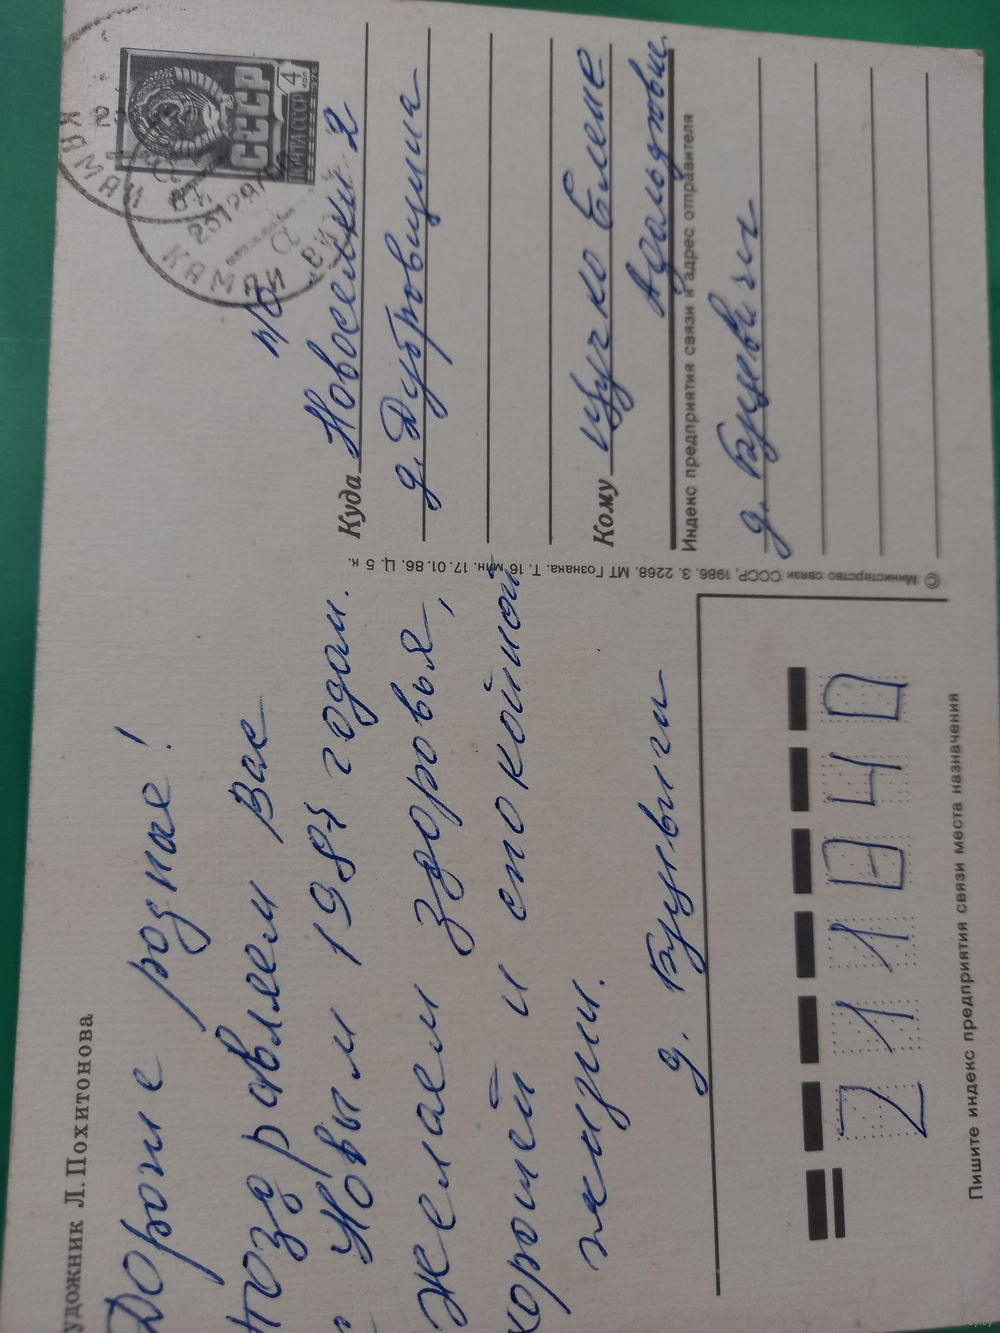 удожник Л. Похитонова
Дорогие родные!
Поздравляем Вас
с Новым 1987 годом.
Желаем здоровья,
хорошей и спокойной
жизни.
д. Буцевичи
© Министерство связи СССР, 1986. З. 2268. МТ Гознака. Т. 16 млн. 17.01.86. Ц. 5 к.
СССР
4 коп
1976
ПОЧТА СССР
п/о
Куда Новоселки 2
д. Дубровщина
Кому Щучко Елене
Адольфовне
Индекс предприятия связи и адрес отправителя
д. Буцевичи
211040
Пишите индекс предприятия связи места назначения